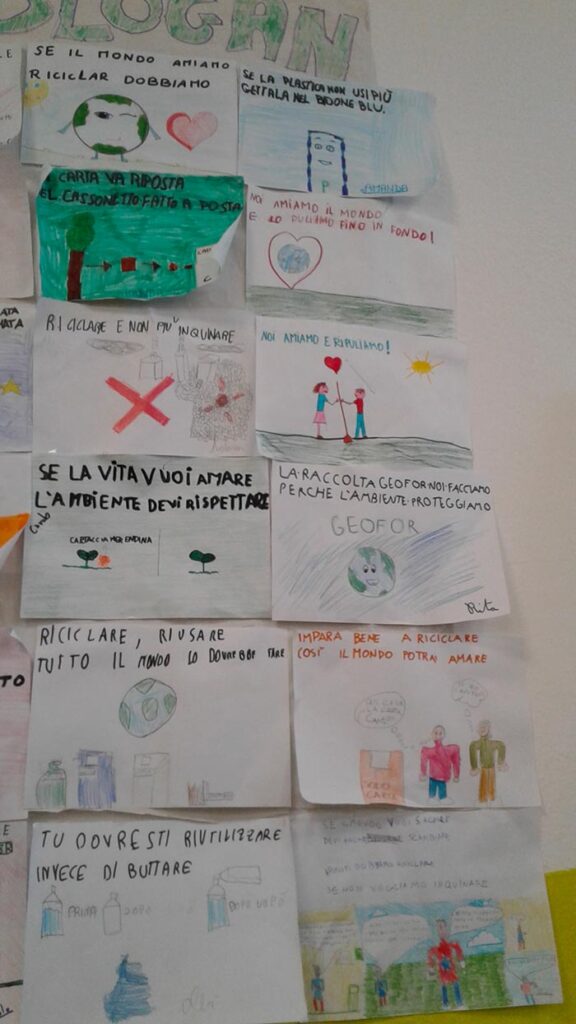 SLOGAN
SE IL MONDO AMIAMO
RICICLAR DOBBIAMO
SE LA PLASTICA NON USI PIÙ
GETTALA NEL BIDONE BLU.
P
AMANDA
CARTA VA RIPOSTA
EL CASSONETTO FATTO A POSTA
NOI AMIAMO IL MONDO
E LO PULIAMO FINO IN FONDO!
RICICLARE E NON PIÙ INQUINARE
NOI AMIAMO E RIPULIAMO!
SE LA VITA VUOI AMARE
L'AMBIENTE DEVI RISPETTARE
CARTACCIA MERENDINA
LA RACCOLTA GEOFOR NOI FACCIAMO
PERCHE L'AMBIENTE PROTEGGIAMO
GEOFOR
Rita
RICICLARE, RIUSARE
TUTTO IL MONDO LO DOVREBBE FARE
IMPARA BENE A RICICLARE
COSÌ IL MONDO POTRAI AMARE
TU DOVRESTI RIUTILIZZARE
INVECE DI BUTTARE
PRIMA
DOPO
DOPO DOPO
SE NON VOGLIAMO INQUINARE